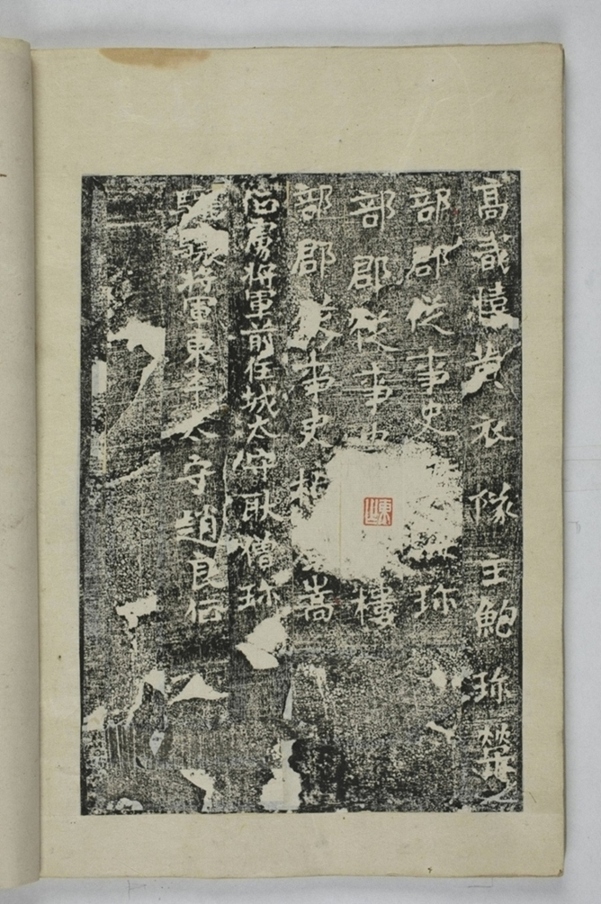 高盛憘黄衣隊主鮑珎
部郡從事史珎
部郡從事史樓
部郡從事史嵩
虜將軍前任城太守耿僧珎
將軍東牟太守趙良